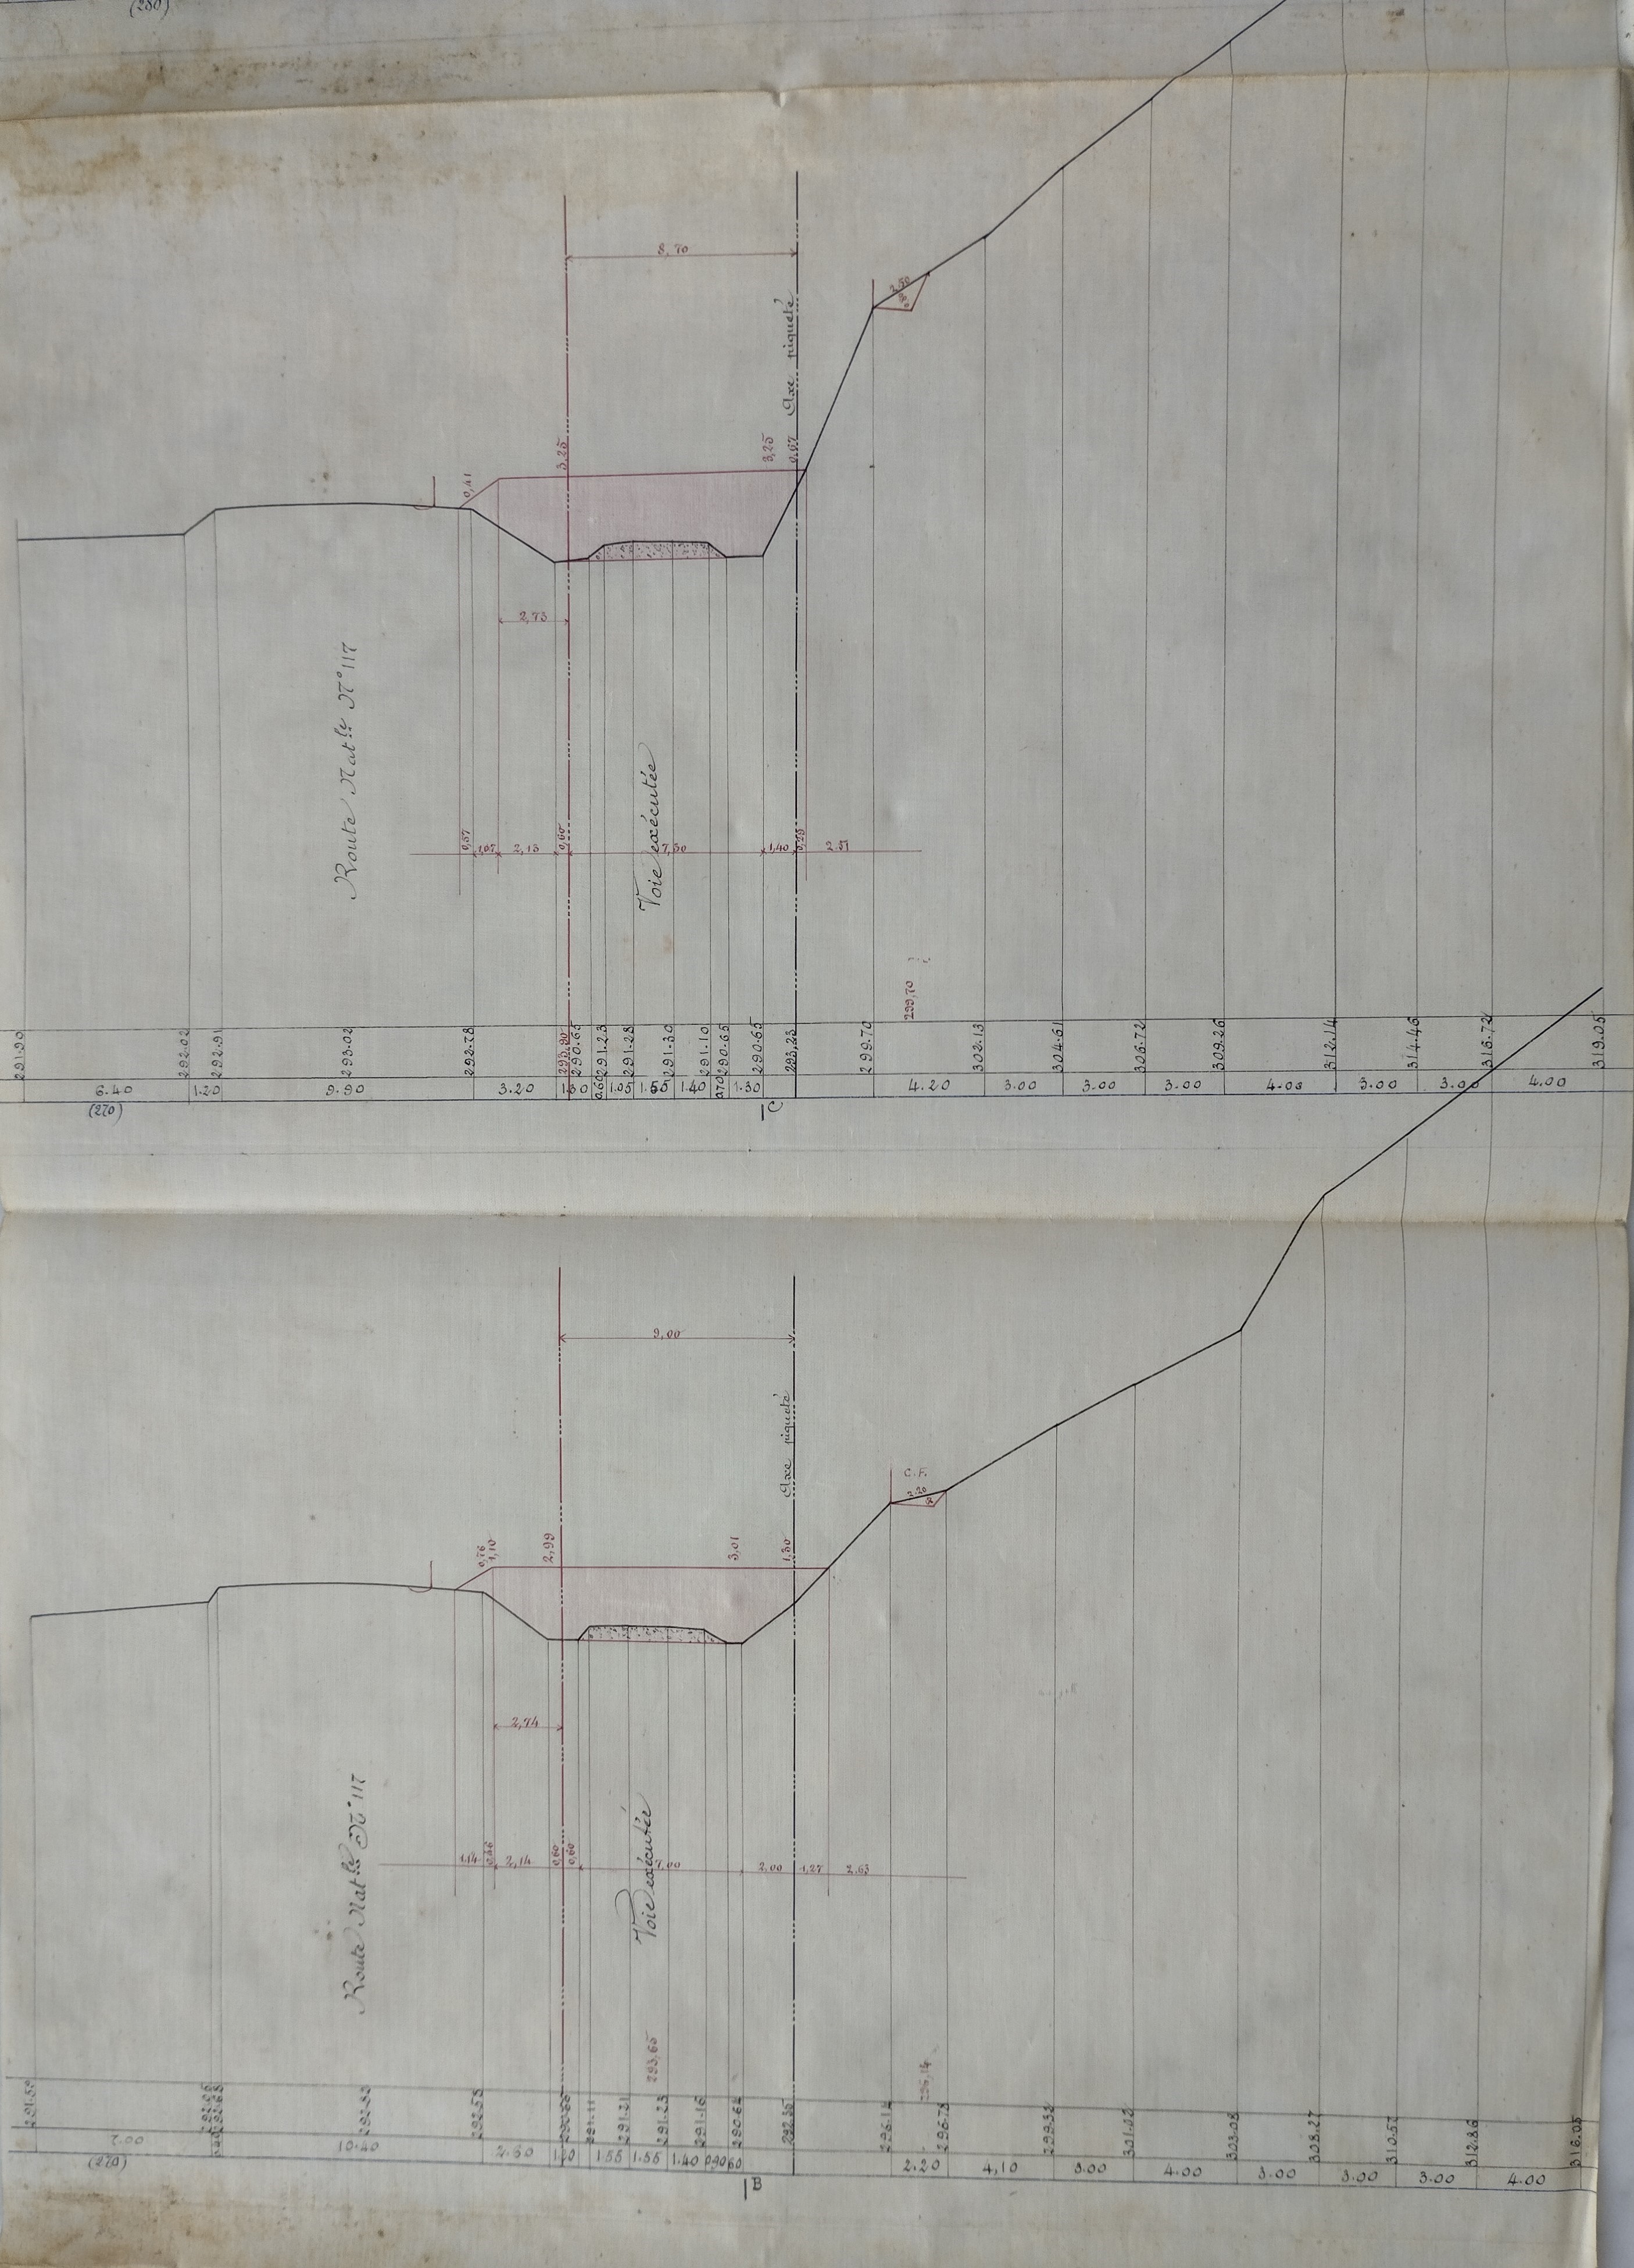 (280)
8,70
Axe piqueté
2.50
0,41
3,25
3,25
0,97
2,73
Route Nat.le N° 117
Voie exécutée
0,57 1,07 2,13 0,60 7,50 1,40 0,29 2.51
299,70
291.90 292.02 292.91 293.02 292.78 293.90 290.65 291.23 291.28 291.30 291.10 290.65 290.65 293,23 299.70 302.13 304.61 306.72 309.26 312.14 314.46 316.72 319.05
6.40 1.20 9.90 3.20 1.30 0.60 1.05 1.55 1.40 0.70 1.30 4.20 3.00 3.00 3.00 4.00 3.00 3.00 4.00
(270)
C
9,00
Axe piqueté
C.F.
2.20
0,76
1,10
2,99
3,01
1,30
2,74
Route Nat.le N° 117
Voie exécutée
1,14 0,36 2,14 0,60 0,60 7,00 2,00 1,27 2.63
293,65
296,14
292.53 291.11 291.21 291.23 291.16 290.64 296.14 296.73 299.32 301.02 303.08 308.27 310.57 312.86 316.05
7.00 10.40 2.60 1.55 1.55 1.40 0.90 60 2.20 4,10 3.00 4.00 3.00 3.00 3.00 4.00
(270)
B